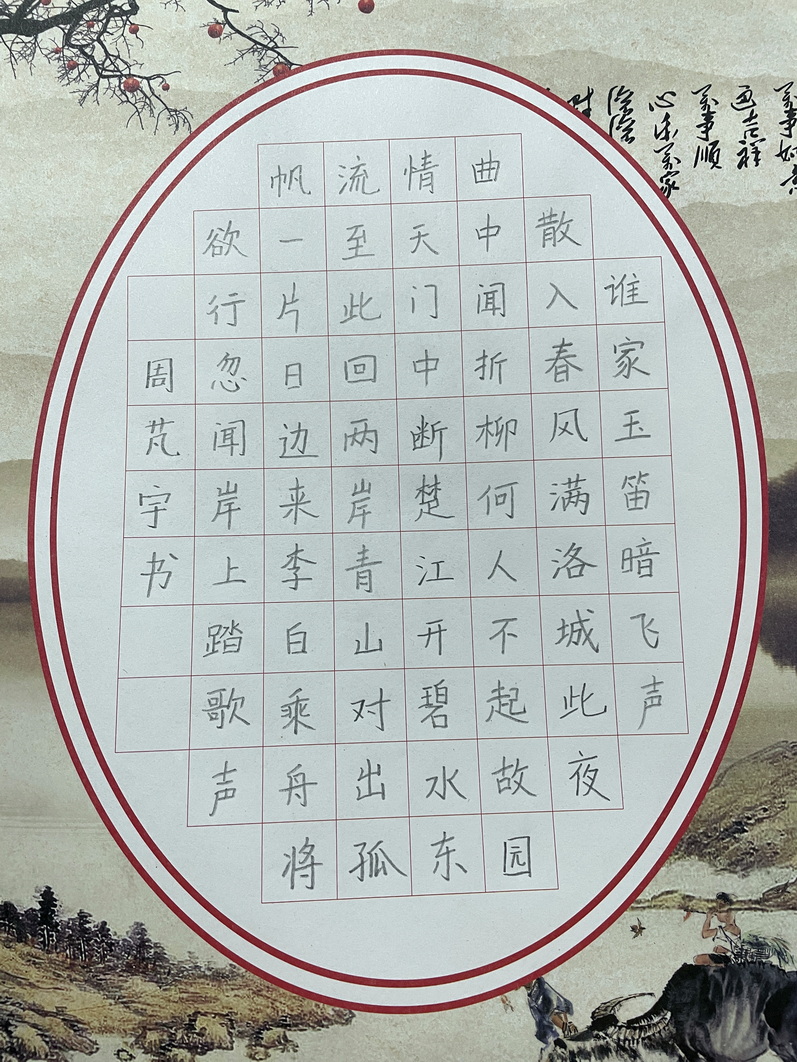 谁家玉笛暗飞声
散入春风满洛城此夜
曲中闻折柳何人不起故园
情天门中断楚江开碧水东
流至此回两岸青山对出孤
帆一片日边来李白乘舟将
欲行忽闻岸上踏歌声
周芃宇书
萬事如意
吉祥
萬事順